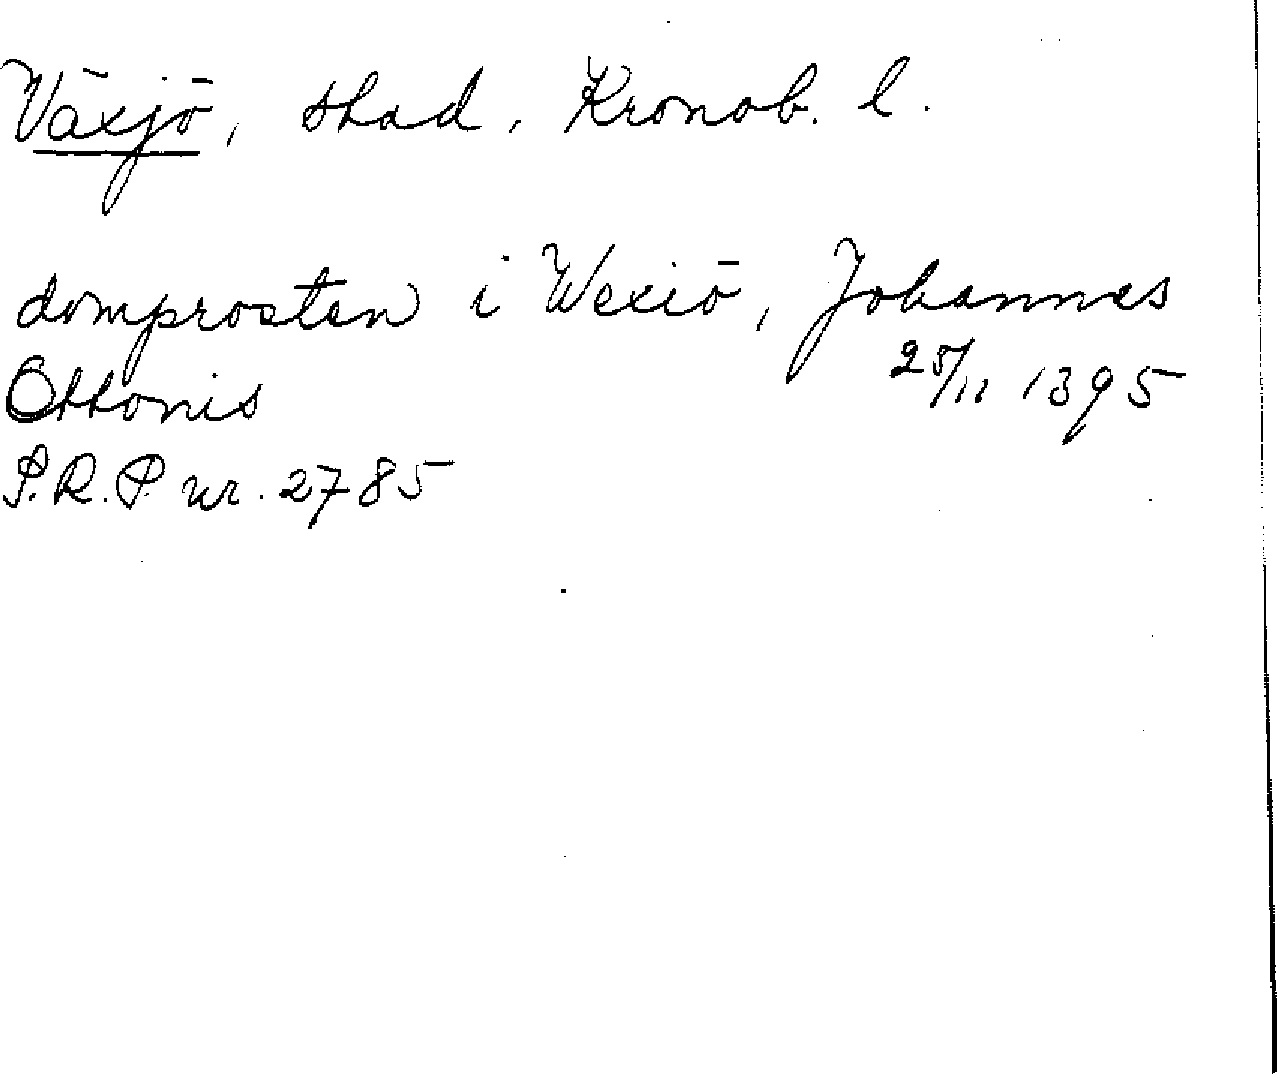 Växjö, stad, Kronob. l.
domprosten i Wexiö, Johannes
Ottonis 25/11 1395
S.R.P. nr. 2785